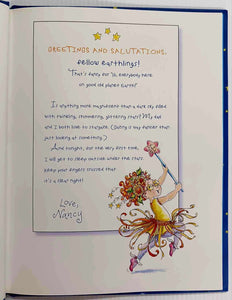 GREETINGS AND SALUTATIONS,
fellow earthlings!
That's fancy for "Hi, everybody here
on good old planet Earth!"
Is anything more magnificent than a dark sky filled
with twinkling, shimmering, glittering stars? My dad
and I both love to stargaze. (Gazing is way fancier than
just looking at something.)
And tonight, for the very first time,
I will get to sleep outside under the stars.
Keep your fingers crossed that
it's a clear night!
Love,
Nancy